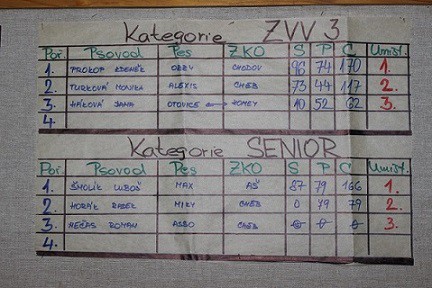 Kategorie ZVV 3
Poř. Psovod Pes ZKO S P C Umíst.
1. PROKOP ZDENĚK ORRY CHODOV 96 74 170 1.
2. TURKOVÁ MONIKA ALEXIS CHEB 73 44 117 2.
3. HÁJKOVÁ JANA OTOVICE HONEY 10 52 62 3.
4.
Kategorie SENIOR
Poř. Psovod Pes ZKO S P C Umíst.
1. ŠMOLÍK LUBOŠ MAX AŠ 87 79 166 1.
2. HORÁK RADEK MIKY CHEB 0 79 79 2.
3. NEČAS ROMAN ASSO CHEB 3.
4.